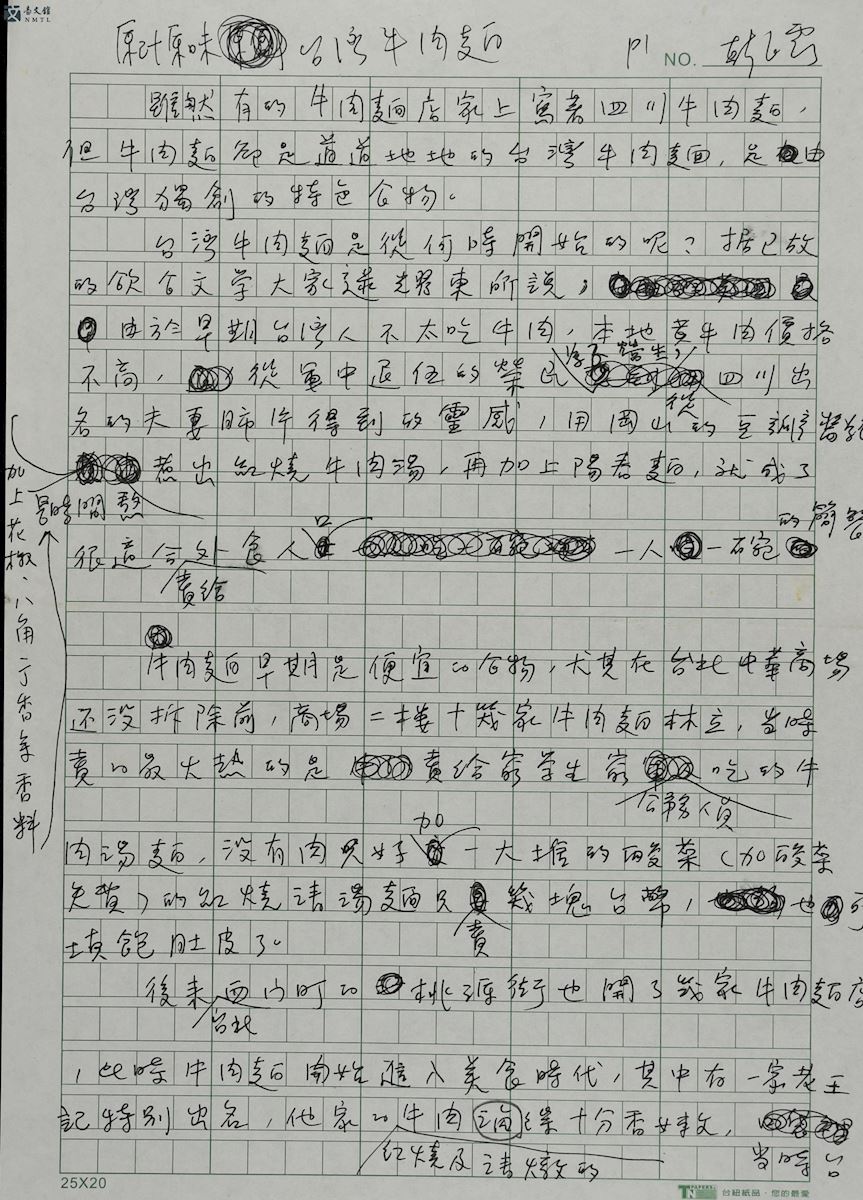 台文館
NMTL
原汁原味 台湾牛肉麵 P1 NO. 韩良露
雖然有的牛肉麵店家上寫著四川牛肉麵，
但牛肉麵卻是道道地地的台灣牛肉麵，是由
台灣獨創的特色食物。
台湾牛肉麵是從何時開始的呢？据已故
的飲食文学大家逯耀東所說，
由於早期台湾人不太吃牛肉，本地黄牛肉價格
不高，從軍中退伍的榮民 四川出
名的夫妻肺片得到的靈感，用岡山的豆瓣醬
從
煮出紅燒牛肉湯，再加上陽春麵，就成了
長時間熬
加上花椒、八角、丁香等香料
很適合外食人口 一人一碗的簡餐
賣給
牛肉麵早期是便宜的食物，尤其在台北中華商場
还没拆除前，商場二楼十幾家牛肉麵林立，当時
賣的最火熱的是賣給窮学生窮 吃的牛
公務員
肉湯麵，没有肉只好加一大堆的酸菜（加酸菜
免費）的紅燒清湯麵只 幾塊台幣， 也可
賣
填飽肚皮了。
後来西门町的桃源街也開了幾家牛肉麵店
台北
，此時牛肉麵開始進入美食時代，其中有一家老王
記特别出名，他家的牛肉 十分香 ，
紅燒及清燉的
当時台
25X20
台紐紙品·您的最愛